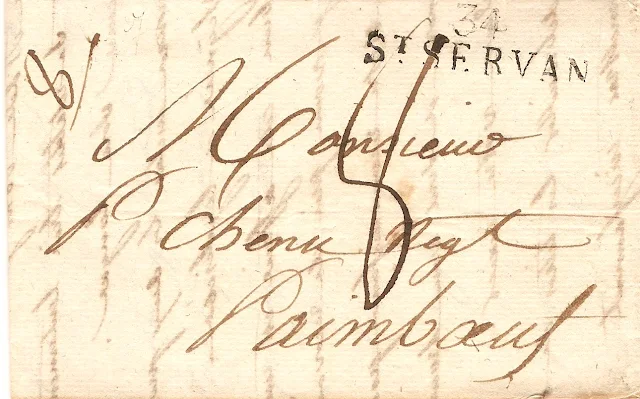 34
ST SERVAN
Monsieur
P chenu Negt
Paimboeuf